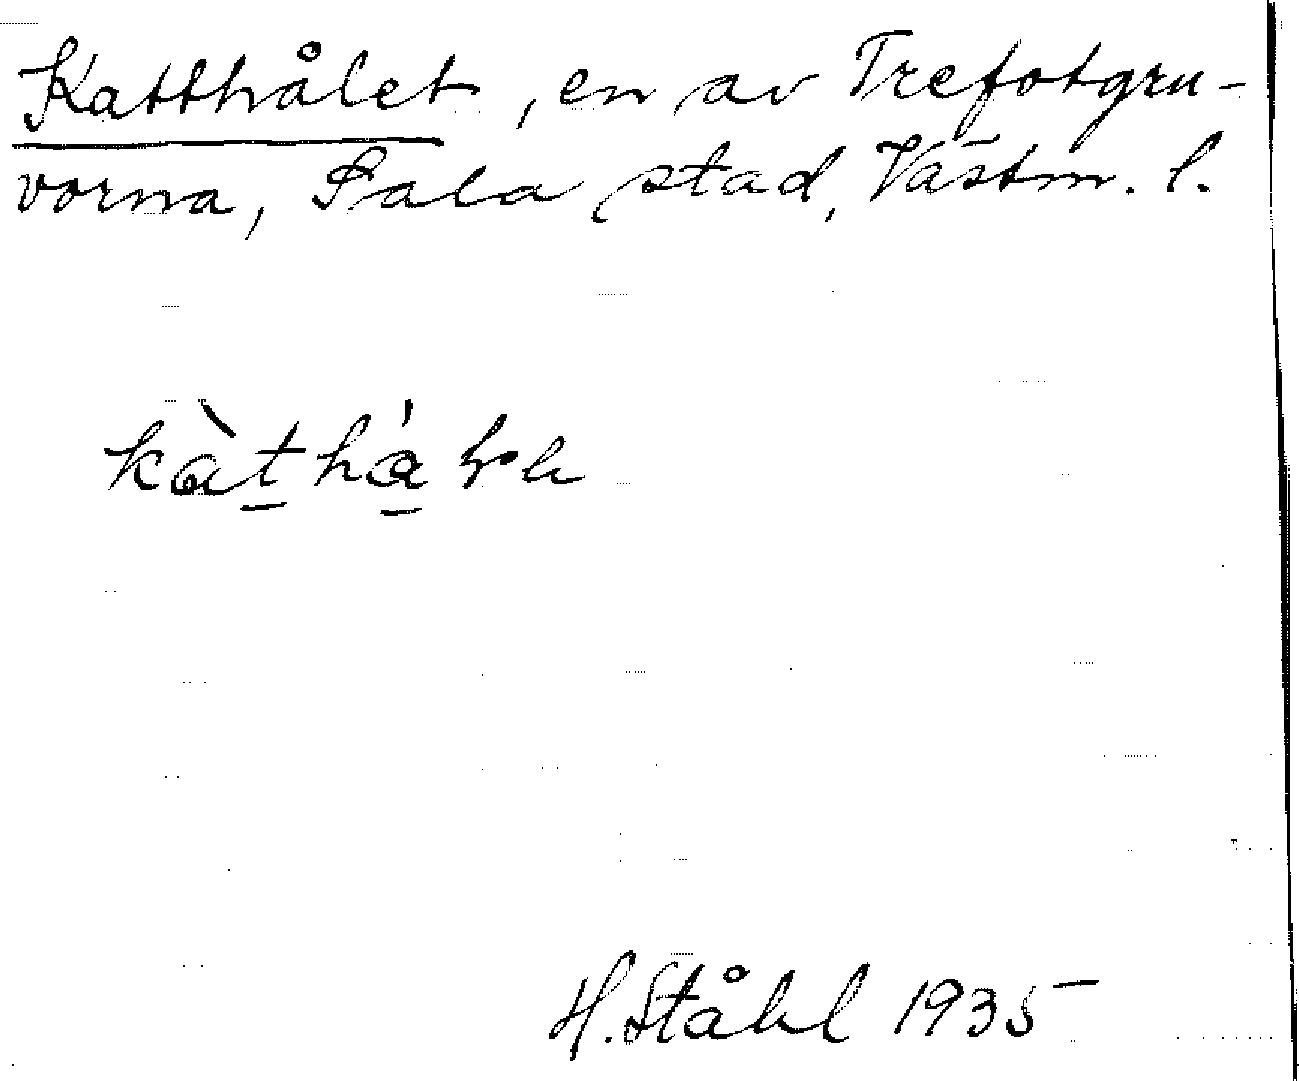 Katthålet, en av Trefotgru-
vorna, Sala stad, Västm. l.
H. Ståhl 1935